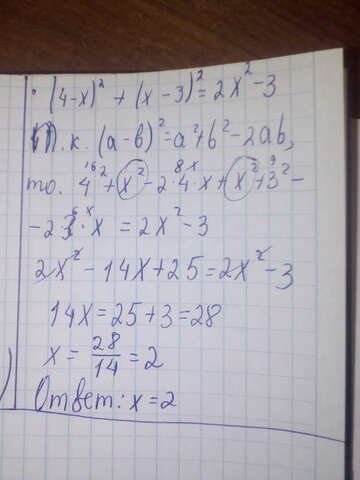 (4-x)² + (x-3)² = 2x²-3
Т.к. (a-b)² = a²+b²-2ab,
то. 4² + x² - 2·4·x + x² + 3² -
16 8x 9
- 2·3·x = 2x²-3
6x
2x² - 14x + 25 = 2x² - 3
14x = 25 + 3 = 28
x = 28/14 = 2
Ответ: x = 2